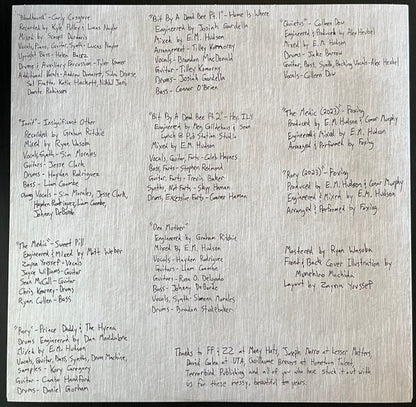 "Bloodhound" - Carly Cosgrove
Recorded by Kyle Pulley & Lucas Naylor
Mixed by Scoops Dardaris
Vocals, Piano, Guitar, Synth - Lucas Naylor
Upright Bass - Helen
Drums & Auxiliary Percussion - Tyler Kramer
Additional Vocals - Andrew
Sal Fratto, Katie Hackett, Nikki
Dante Robinson
"Inuit" - Insignificant Other
Recorded by Graham Richie
Mixed by Ryan Wasoba
Vocals, Synth - Sim Morales
Guitars - Jesse Clark
Drums - Hayden Rodriguez
Bass - Liam Coombe
Gang Vocals - Sim Morales, Jesse Clark,
Hayden Rodriguez, Liam Coombe,
Johnny
"The Medic" - Sweet Pill
Engineered & Mixed by Matt Weber
Zayna Youssef - Vocals
Jayce Williams - Guitar
Sean McCall - Guitar
Chris Kearney - Drums
Ryan Cullen - Bass
"Rory" - Prince Daddy & The Hyena
Drums Engineered by Dan
Mixed by E.M. Hudson
Vocals, Guitar, Bass, Synths, Drum Machine,
Samples - Kory Gregory
Guitar - Cameron Handford
Drums - Daniel Gorham
"Bit By A Dead Bee Pt. 1" - Home Is Where
Engineered by Josiah Gardella
Mixed by E.M. Hudson
Arrangement - Tilley Komorny
Vocals - Brandon MacDonald
Guitar - Tilley Komorny
Drums - Josiah Gardella
Bass - Connor O'Brien
"Bit By A Dead Bee Pt. 2" - Hey, ILY
Engineered by & Sean
Lynch @ Pub Station Studio
Mixed by E.M. Hudson
Vocals, Guitar, Farts - Caleb Haynes
Bass, Farts - Stephen Redmond
Guitar, Farts - Trevin Baker
Synths, Not Farts - Skyy Haman
Drums, Farts - Conner Haman
"Dex Mother"
Engineered by Graham Richie
Mixed by E.M. Hudson
Vocals - Hayden Rodriguez
Guitars - Liam Coombe
Guitars - Ross O. Delgado
Bass - Johnny
Vocals, Synth - Simon Morales
Drums - Brandon
"Quietus" - Colleen Dow
Engineered & Produced by Alex Heubel
Mixed by E.M. Hudson
Drums - Jake Barrow
Guitar, Bass, Synth, Backing Vocals - Alex Heubel
Vocals - Colleen Dow
"The Medic (2023)" - Foxing
Produced by E.M. Hudson & Conor Murphy
Engineered & Mixed by E.M. Hudson
Arranged & Performed by Foxing
"Rory (2023)" - Foxing
Produced by E.M. Hudson & Conor Murphy
Engineered & Mixed by E.M. Hudson
Arranged & Performed by Foxing
Mastered by Ryan Wasoba
Front & Back Cover Illustration by
Monehiwa Machida
Layout by Zayna Youssef
Thanks to FF & ZZ at Many Hats, Joseph Marro at Lesser Matters,
David Galea at UTA, Guillermo at Hometown Talent,
Terrorbird Publishing and all of you who have stuck it out with
us for these messy, beautiful ten years.